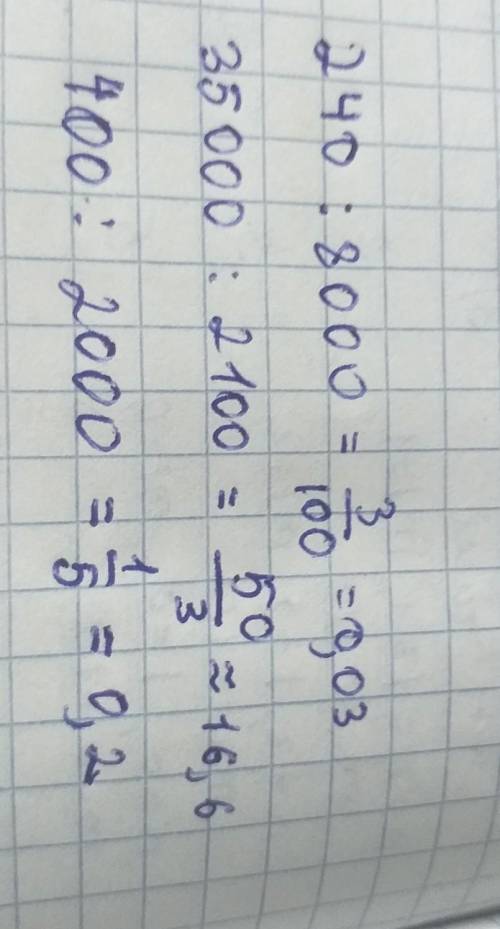 240 : 8000 = 3/100 = 0,03
35000 : 2100 = 50/3 ≈ 16,6
400 : 2000 = 1/5 = 0,2